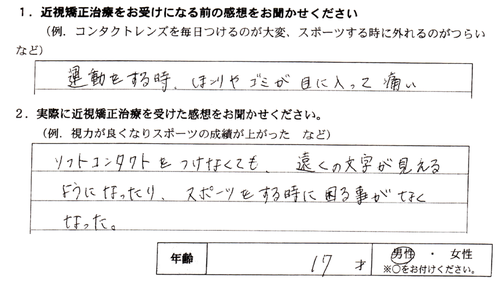 １．近視矯正治療をお受けになる前の感想をお聞かせください
（例．コンタクトレンズを毎日つけるのが大変、スポーツする時に外れるのがつらい
など）
運動をする時、ほこりやゴミが目に入って痛い
２．実際に近視矯正治療を受けた感想をお聞かせください。
（例．視力が良くなりスポーツの成績が上がった　など）
ソフトコンタクトをつけなくても、遠くの文字が見える
ようになったり、スポーツをする時に困る事がなく
なった。
年齢　17才　男性 ・ 女性
※○をお付けください。